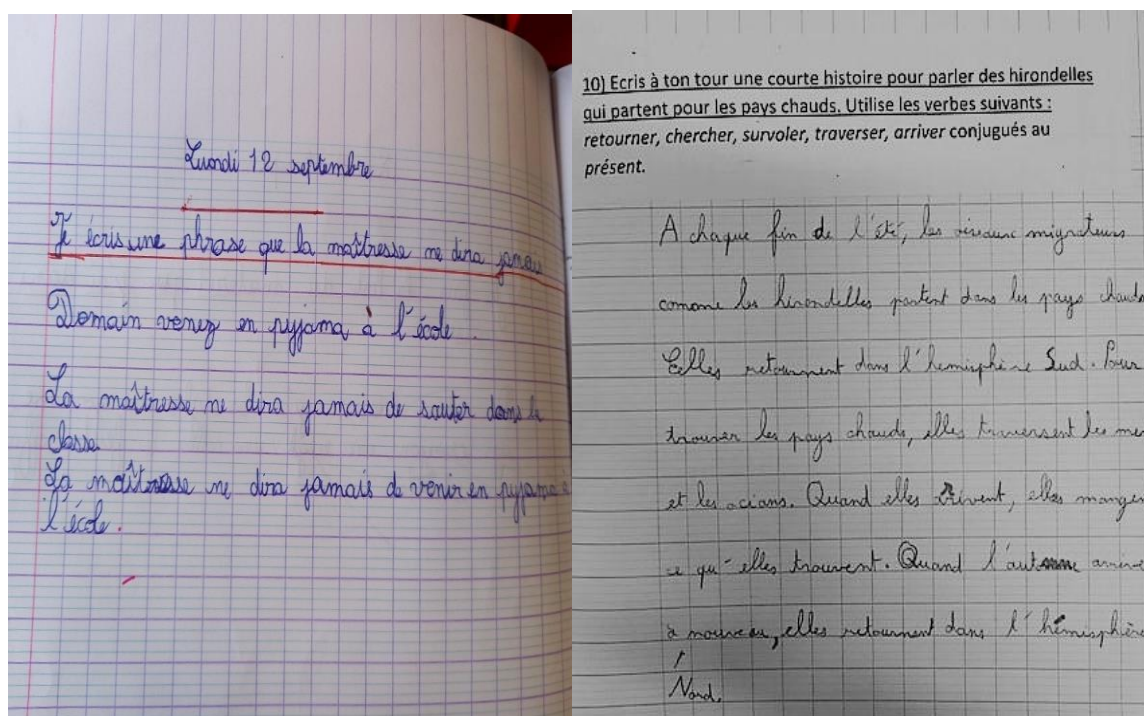 Lundi 12 septembre
Je écris une phrase que la maîtresse ne dira jamais
Domain venez en pyjama à l'école.
La maîtresse ne dira jamais de sauter dans la
classe
La maîtresse ne dira jamais de venir en pyjama à
l'école.
10) Ecris à ton tour une courte histoire pour parler des hirondelles
qui partent pour les pays chauds. Utilise les verbes suivants :
retourner, chercher, survoler, traverser, arriver conjugués au
présent.
A chaque fin de l'été, les oiseaux migrateurs
comme les hirondelles partent dans les pays chauds
Elles retournent dans l'hemisphère Sud. Pour
trouver les pays chauds, elles traversent les mer
et les ocians. Quand elles arivent, elles mangen
ce qu'elles trouvent. Quand l'automne arrive
à nouveau, elles retournent dans l'hémisphère
Nord.